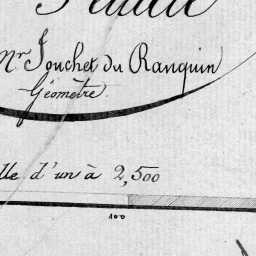 Feuille
Mr Jouchet du Ranquin
Géomètre
lle d'un à 2,500
100